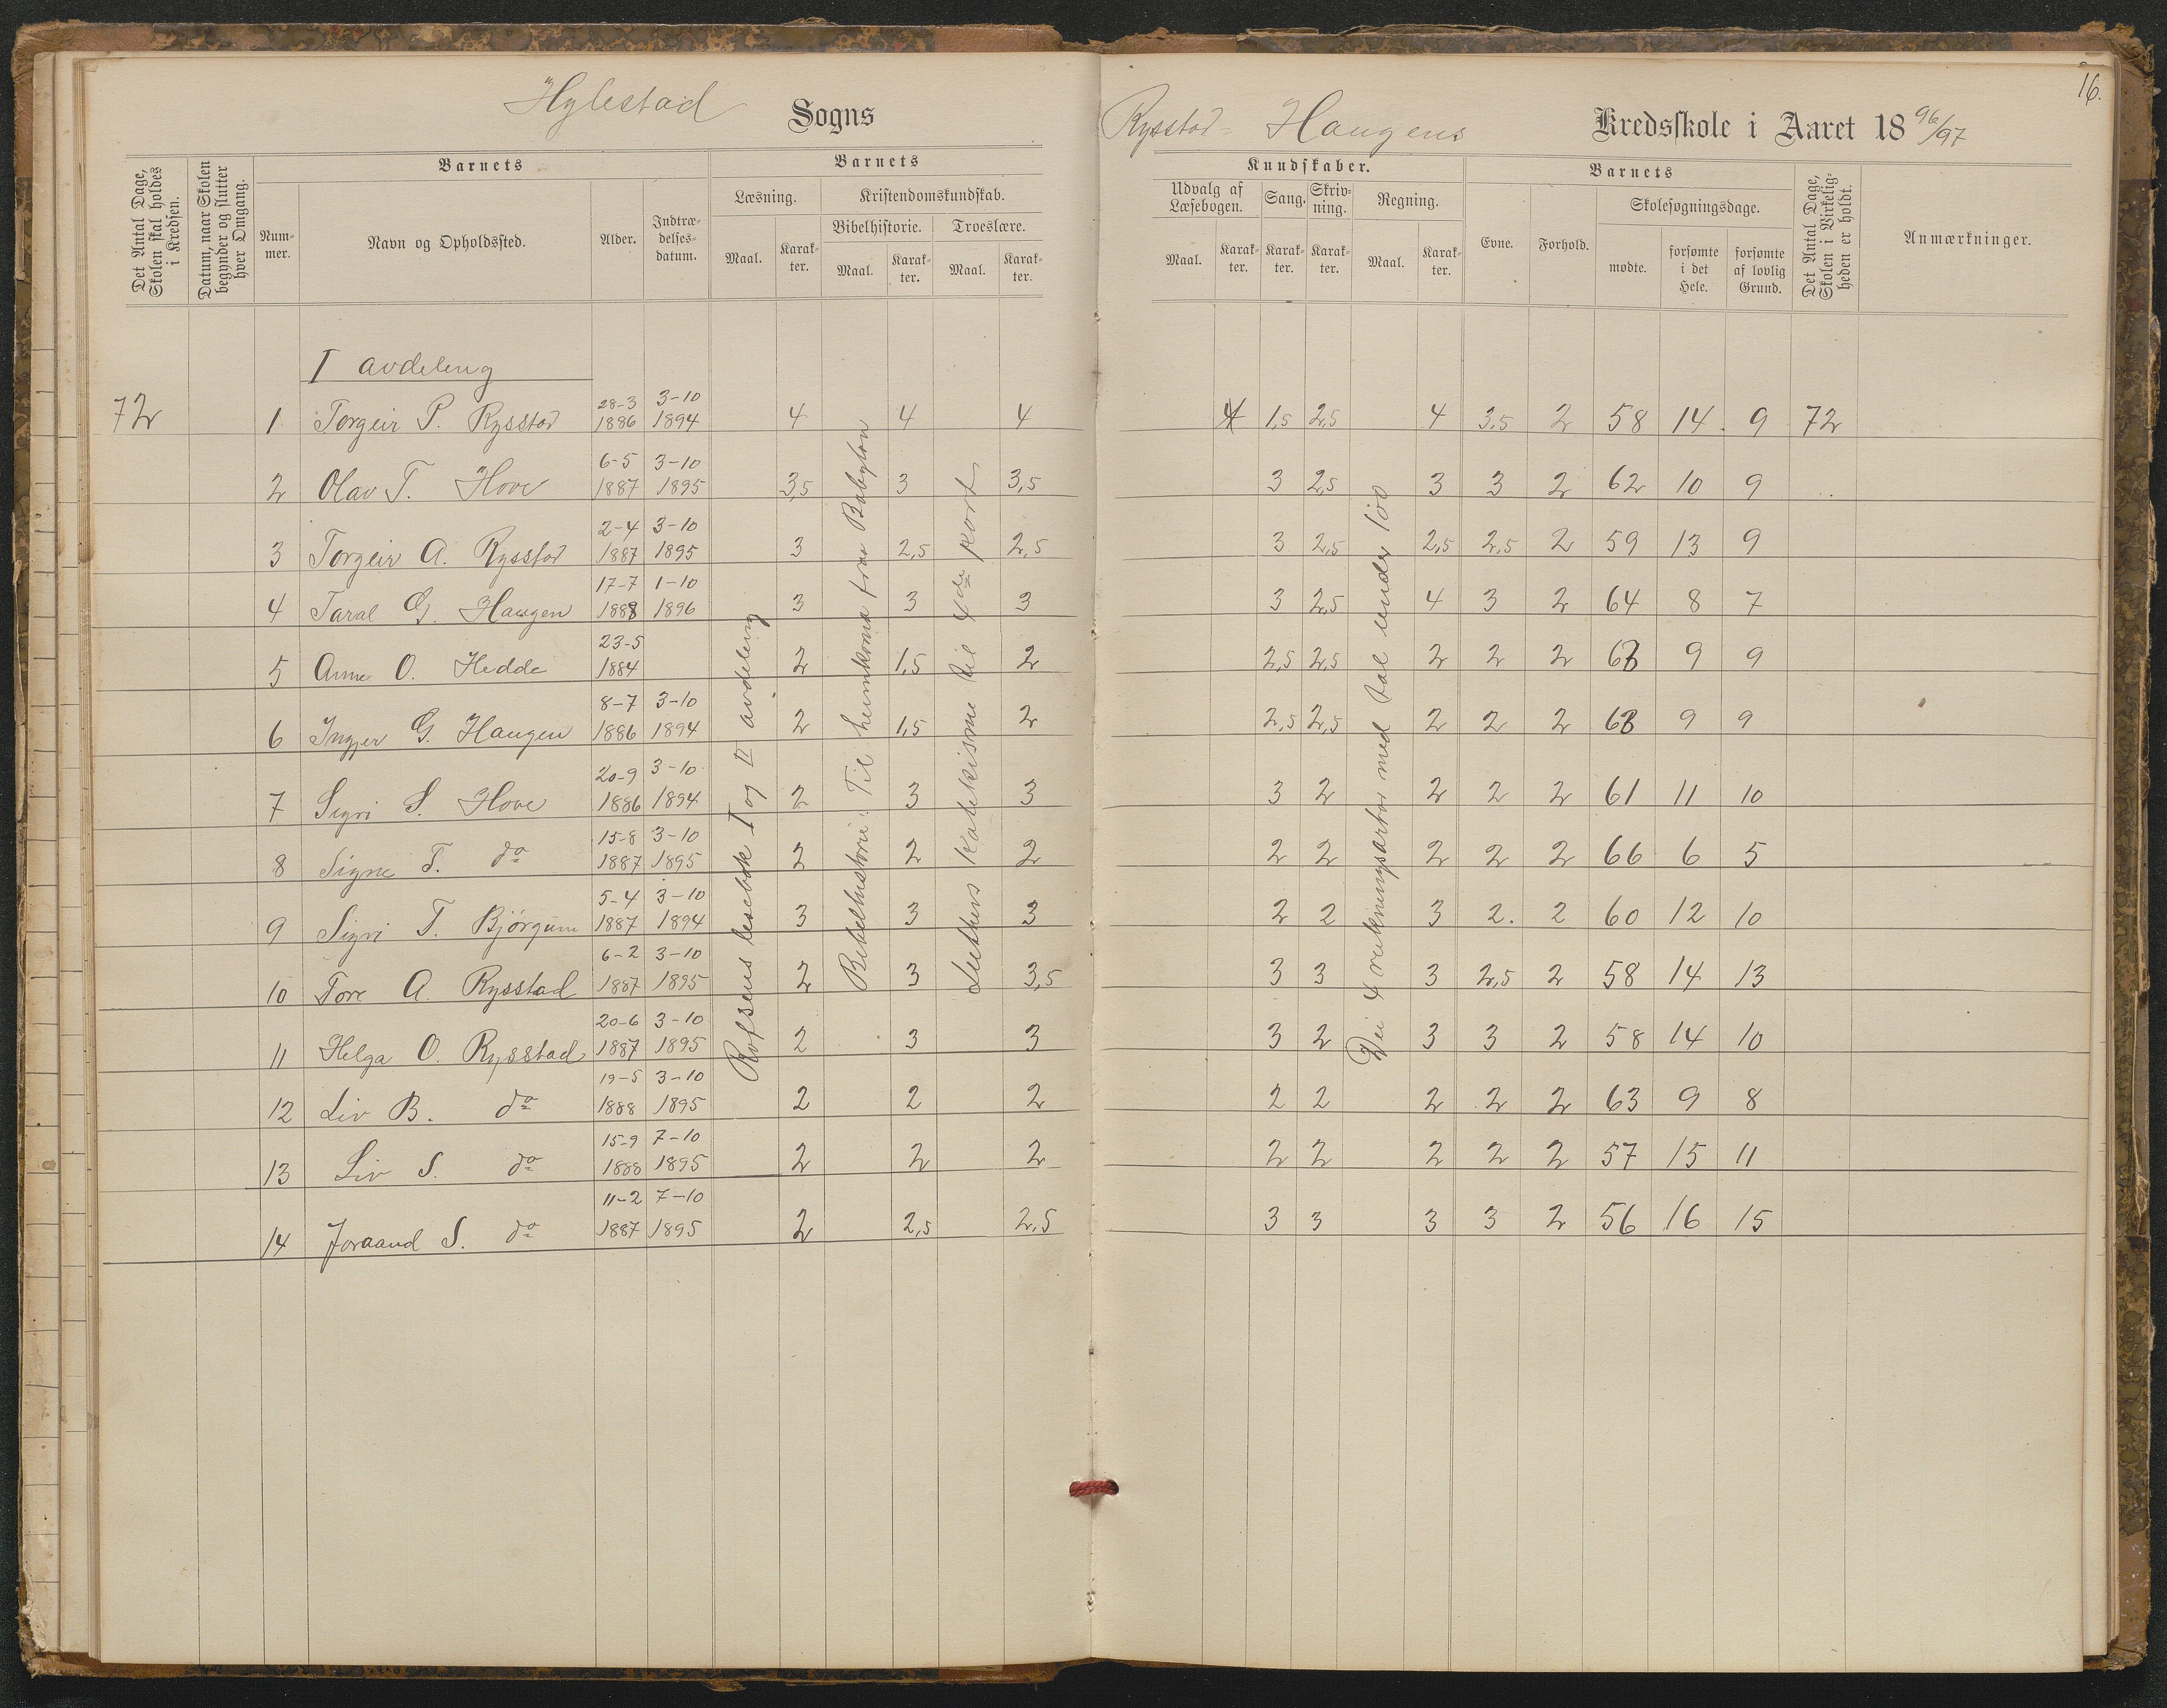 16.
Hylestad Sogns
Rysstad- Haugens Kredsskole i Aaret 1896/97
Det Antal Dage, Skolen skal holdes i Kredsen.
Datum, naar Skolen begynder og slutter hver Omgang.
Barnets
Nummer.
Navn og Opholdssted.
Alder.
Indtrædelses-datum.
Barnets
Læsning.
Maal.
Karakter.
Kristendomskundskab.
Bibelhistorie.
Maal.
Karakter.
Troeslære.
Maal.
Karakter.
Kundskaber.
Udvalg af Læsebogen.
Maal.
Karakter.
Sang.
Karakter.
Skrivning.
Karakter.
Regning.
Maal.
Karakter.
Barnets
Evne.
Forhold.
Skolesøgningsdage.
mødte.
forsømte i det Hele.
forsømte af lovlig Grund.
Det Antal Dage, Skolen i Virkeligheden er holdt.
Anmærkninger.
I avdeleng
72 1 Torgeir P. Rysstad 28-3 1886 3-10 1894 4 4 4 4 1,5 2,5 4 3,5 2 58 14 9 72
2 Olav T. Hove 6-5 1887 3-10 1895 3,5 3 3,5 3 2,5 3 3 2 62 10 9
3 Torgeir A. Rysstad 2-4 1887 3-10 1895 3 2,5 2,5 3 2,5 2,5 2,5 2 59 13 9
4 Taral G. Haugen 17-7 1888 1-10 1896 3 3 3 3 2,5 4 3 2 64 8 7
5 Anne O. Hedde 23-5 1884 2 1,5 2 2,5 2,5 2 2 2 63 9 9
6 Ingjer G. Haugen 8-7 1886 3-10 1894 2 1,5 2 2,5 2,5 2 2 2 63 9 9
7 Sigri S. Hove 20-9 1886 3-10 1894 2 3 3 3 2 2 2 2 61 11 10
8 Signe T. do 15-8 1887 3-10 1895 2 2 2 2 2 2 2 2 66 6 5
9 Sigri T. Bjørgum 5-4 1887 3-10 1894 3 3 3 2 2 3 2. 2 60 12 10
10 Tore A. Rysstad 6-2 1887 3-10 1895 2 3 3,5 3 3 3 2,5 2 58 14 13
11 Helga O. Rysstad 20-6 1887 3-10 1895 2 3 3 3 2 3 3 2 58 14 10
12 Liv B. do 19-5 1888 3-10 1895 2 2 2 2 2 2 2 2 63 9 8
13 Liv S. do 15-9 1888 7-10 1895 2 2 2 2 2 2 2 2 57 15 11
14 Joraand S. do 11-2 1887 7-10 1895 2 2,5 2,5 3 3 3 3 2 56 16 15
Rolfsens lesebok I og II avdeleng
Bibelhistorie: Til heimkoma fraa Babylon
Luthers Katekisme til 4de part
Dei 4 rekningsartar med tal under 100